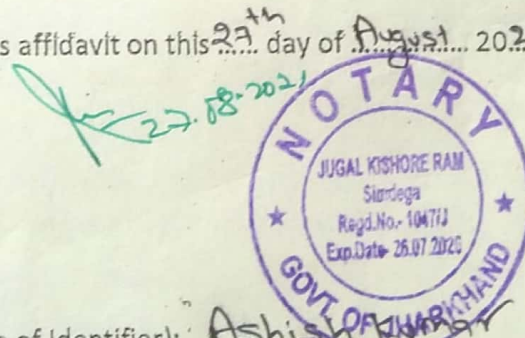 s affidavit on this 27th day of August 202
27.08.2021
NOTARY
JUGAL KISHORE RAM
Simdega
Regd.No.- 1047/J
Exp.Date- 26.07.2026
GOVT. OF JHARKHAND
of Identifier): Ashish Kumar